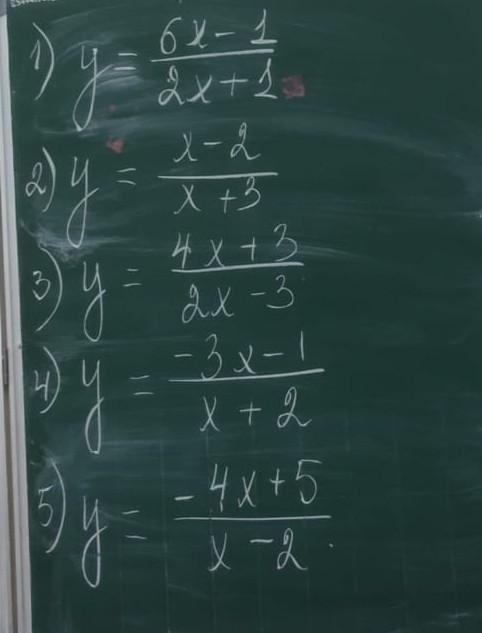 1) y = (6x-1)/(2x+1)
2) y = (x-2)/(x+3)
3) y = (4x+3)/(2x-3)
4) y = (-3x-1)/(x+2)
5) y = (-4x+5)/(x-2)